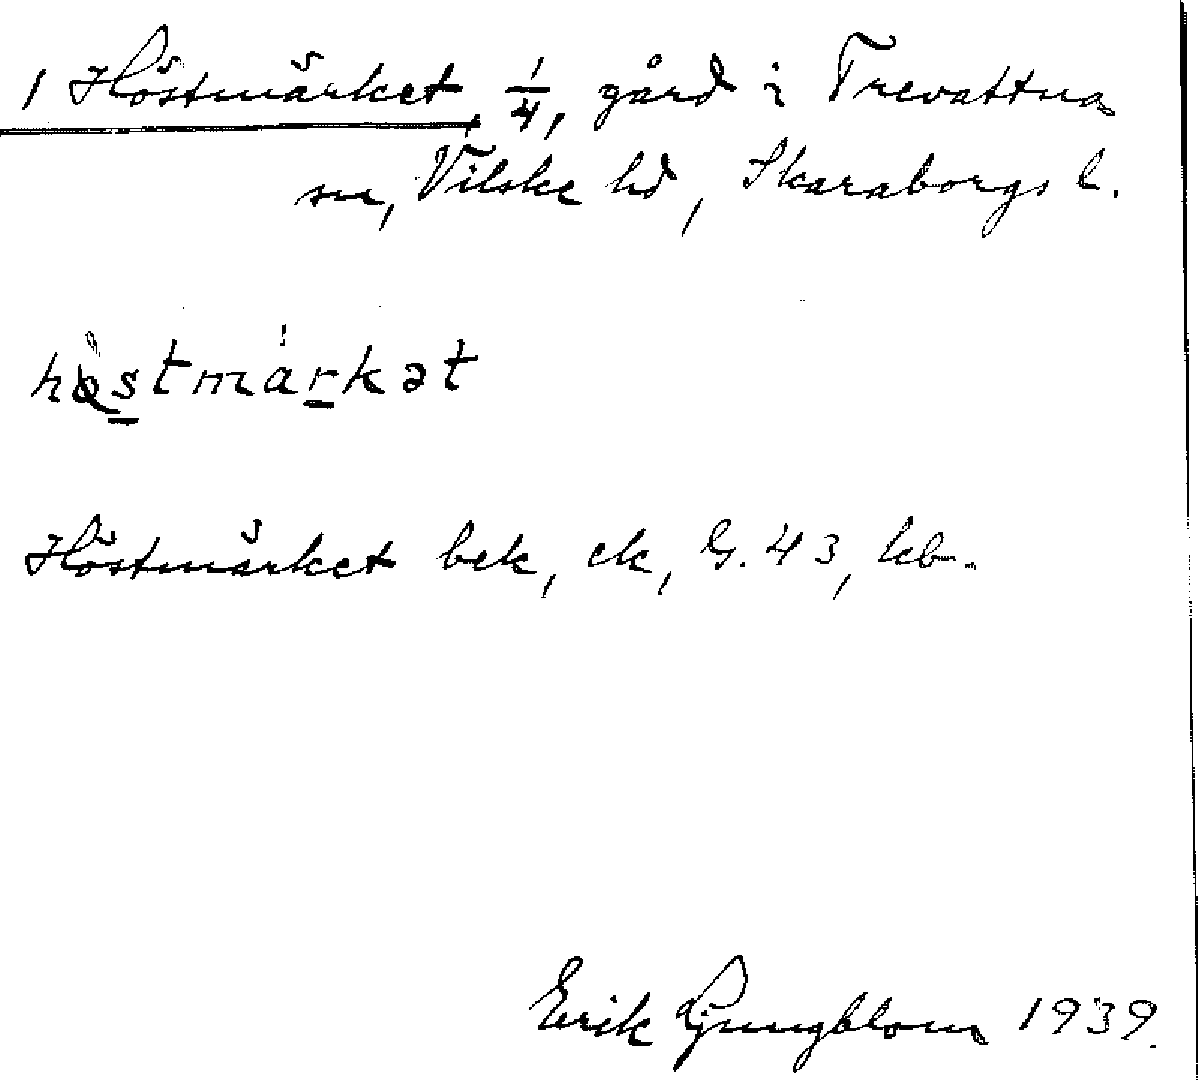 1 Höstmärket, 1/4, gård i Trevattna
sn, Vilske hd, Skaraborgs l.
höstmärkət
Höstmärket bek, ek, G. 43, kb.
Erik Ljungblom 1939.